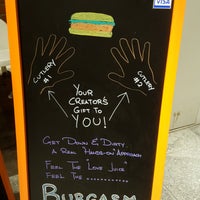 VISA
CUTLERY
#1
CUTLERY
#2
YOUR
CREATOR'S
GIFT TO
YOU!
GET DOWN & DIRTY
A REAL "HANDS-ON" APPROACH
FEEL THE "LOVE JUICE"
FEEL THE ...........
BURGASM